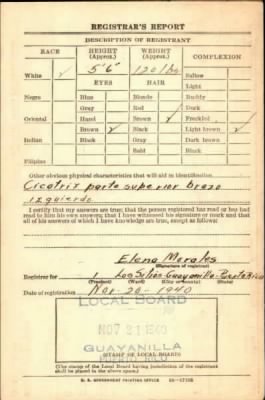 REGISTRAR'S REPORT
DESCRIPTION OF REGISTRANT
RACE HEIGHT (Approx.) WEIGHT (Approx.) COMPLEXION
White ✓ 5'6" 120 lbs Sallow
EYES HAIR Light
Negro Blue Blonde Ruddy
Gray Red Dark
Oriental Hazel Brown ✓ Freckled
Brown ✓ Black Light brown ✓
Indian Black Gray Dark brown
Bald Black
Filipino
Other obvious physical characteristics that will aid in identification
Cicatriz parte superior brazo
izquierdo
I certify that my answers are true; that the person registered has read or has had
read to him his own answers; that I have witnessed his signature or mark and that
all of his answers of which I have knowledge are true, except as follows:
Elena Morales
(Signature of registrar)
Registrar for 1 Guayanilla - Puerto Rico
(Precinct) (Ward) (City or county) (State)
Date of registration Nov. 20 - 1940
LOCAL BOARD
NOV 21 1940
GUAYANILLA
PUERTO RICO
(STAMP OF LOCAL BOARD)
(The stamp of the Local Board having jurisdiction of the registrant
shall be placed in the above space.)
U. S. GOVERNMENT PRINTING OFFICE